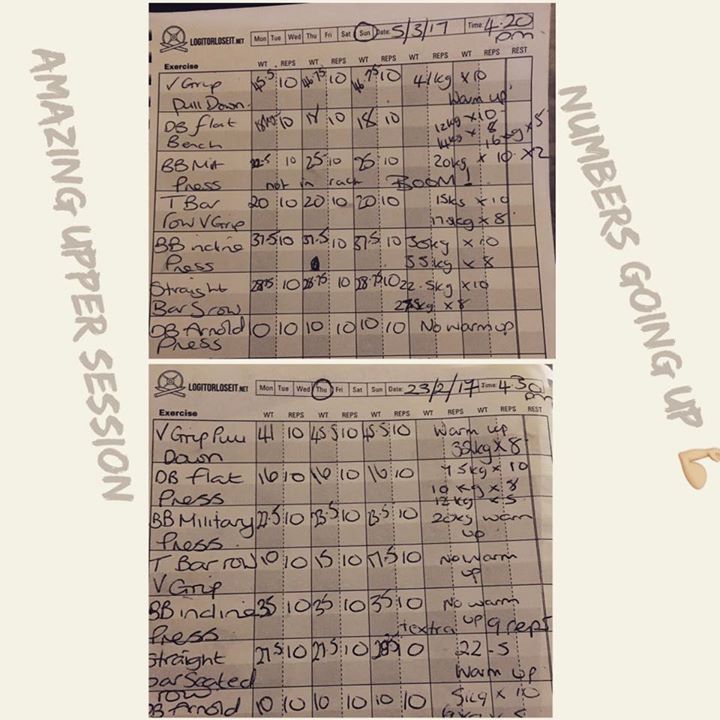 AMAZING UPPER SESSION
NUMBERS GOING UP
LOGITORLOSEIT.NET Mon Tue Wed Thu Fri Sat Sun Date: 5/3/17 Time: 4.20 pm
Exercise WT REPS WT REPS WT REPS WT REPS WT REPS REST
V Grip 45.5 10 10 10 41kg x 10
Pull Down Warm up
DB flat 10 10 18 10 12kg x 10
Bench 14kg x 8 16kg x 5
BB Mil 22.5 10 25 10 25 10 20kg x 10 x2
Press not in rack BOOM
T Bar 20 10 20 10 20 10 15kg x 10
row V Grip 17.5kg x 8
BB incline 37.5 10 37.5 10 37.5 10 30kg x 10
Press 35kg x 8
Straight 28.75 10 28.75 10 28.75 10 22.5kg x 10
Bar S row x 8
DB Arnold 10 10 10 10 10 No warm up
Press
LOGITORLOSEIT.NET Mon Tue Wed Thu Fri Sat Sun Date: 23/2/17 Time: 4.30 pm
Exercise WT REPS WT REPS WT REPS WT REPS WT REPS REST
V Grip Pull 41 10 45.5 10 45.5 10 Warm up
Down 32kg x 8
DB flat 16 10 16 10 16 10 7.5kg x 10
Press 10kg x 8
12kg x 5
BB Military 22.5 10 23.5 10 23.5 10 20kg warm
Press up
T Bar row 10 10 15 10 17.5 10 No warm
V Grip up
BB incline 35 10 35 10 35 10 No warm
Press 1 extra up 9 reps
Straight 27.5 10 27.5 10 10 22.5
bar Seated Warm up
row
DB Arnold 10 10 10 10 10 10 5kg x 10